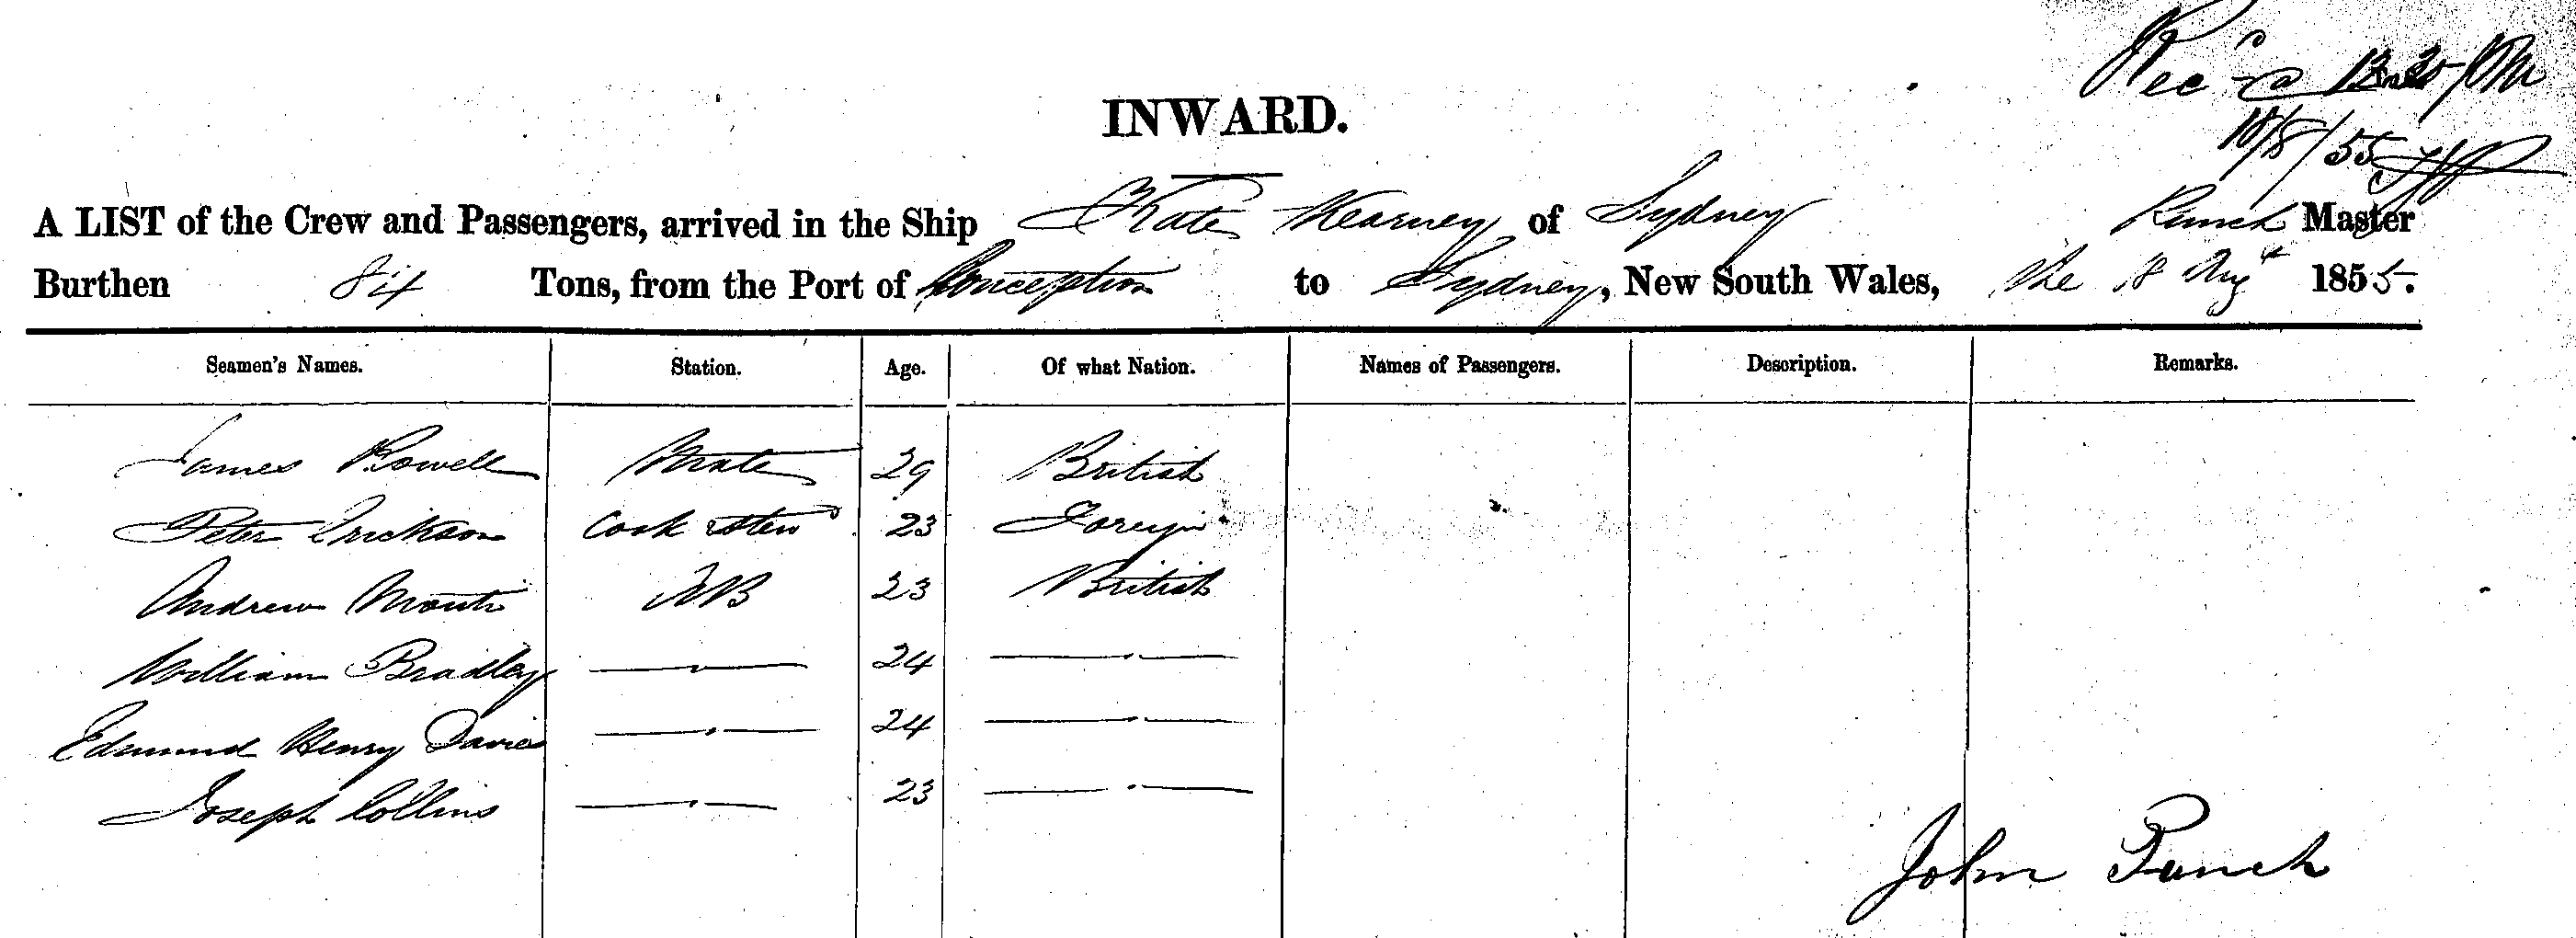 Rec d 12.20 PM
18/8/55
INWARD.
A LIST of the Crew and Passengers, arrived in the Ship Kate Kearney of Sydney Punch Master
Burthen Tons, from the Port of Conception to Sydney, New South Wales, the 18 Augt 1855.
Seamen's Names. Station. Age. Of what Nation. Names of Passengers. Description. Remarks.
James Rowell Mate 29 British
Peter Erickson Cook Stew 23 Foreign
Andrew AB 23 British
William Bradley —— . —— 24 —— . ——
Edmund Henry Davies —— . —— 24 —— . ——
Joseph Collins —— . —— 23 —— . ——
John Punch